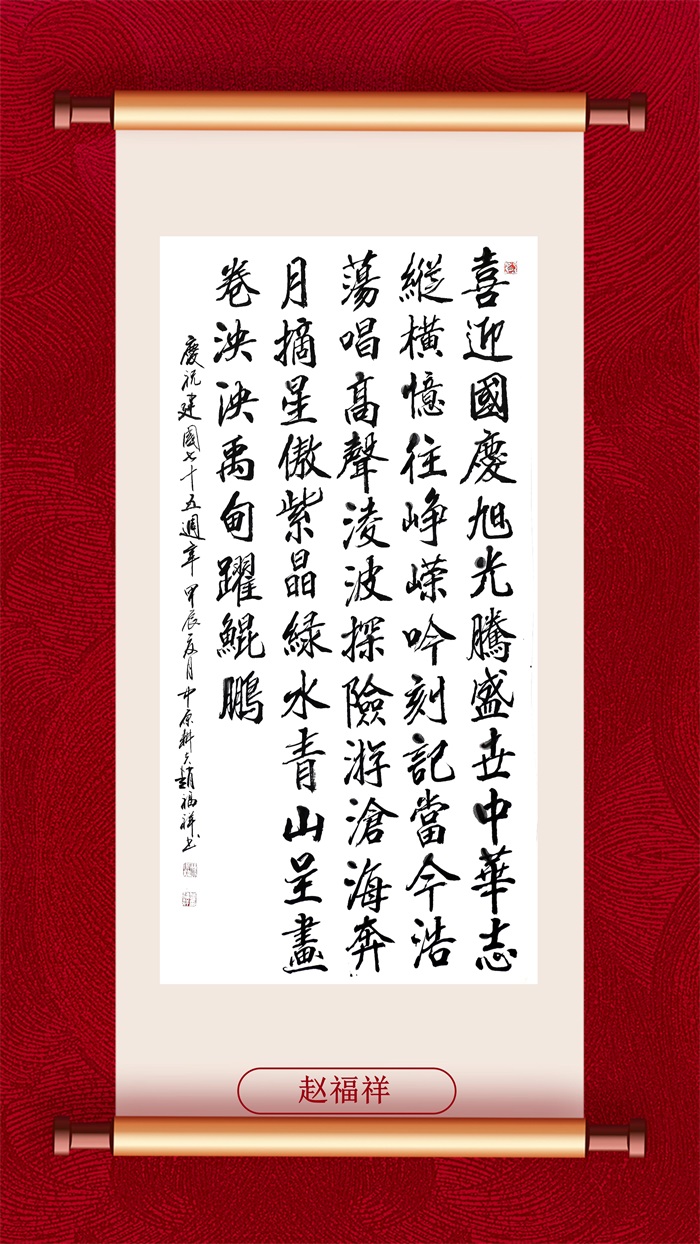 喜迎國慶旭光騰盛世中華志
縱橫憶往崢嶸吟刻記當今浩
蕩唱高聲淩波探險游滄海奔
月摘星傲紫晶綠水青山呈畫
卷泱泱禹甸躍鯤鵬
慶祝建國七十五週年甲辰夏月中原科夫趙福祥書
赵福祥